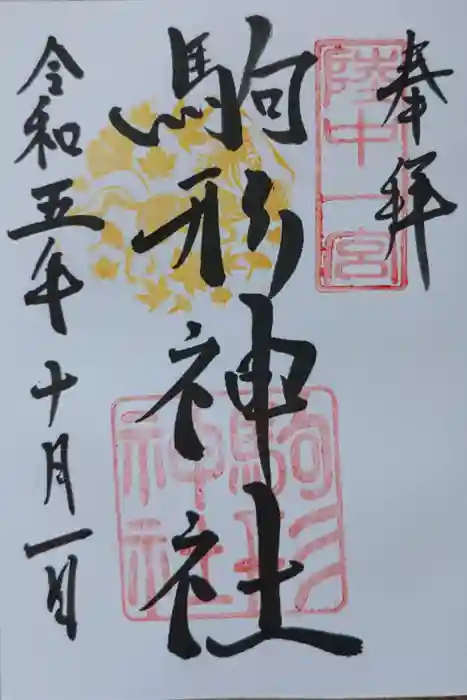 奉拝
陸中一宮
駒形神社
駒形
神社
令和五年十月一日